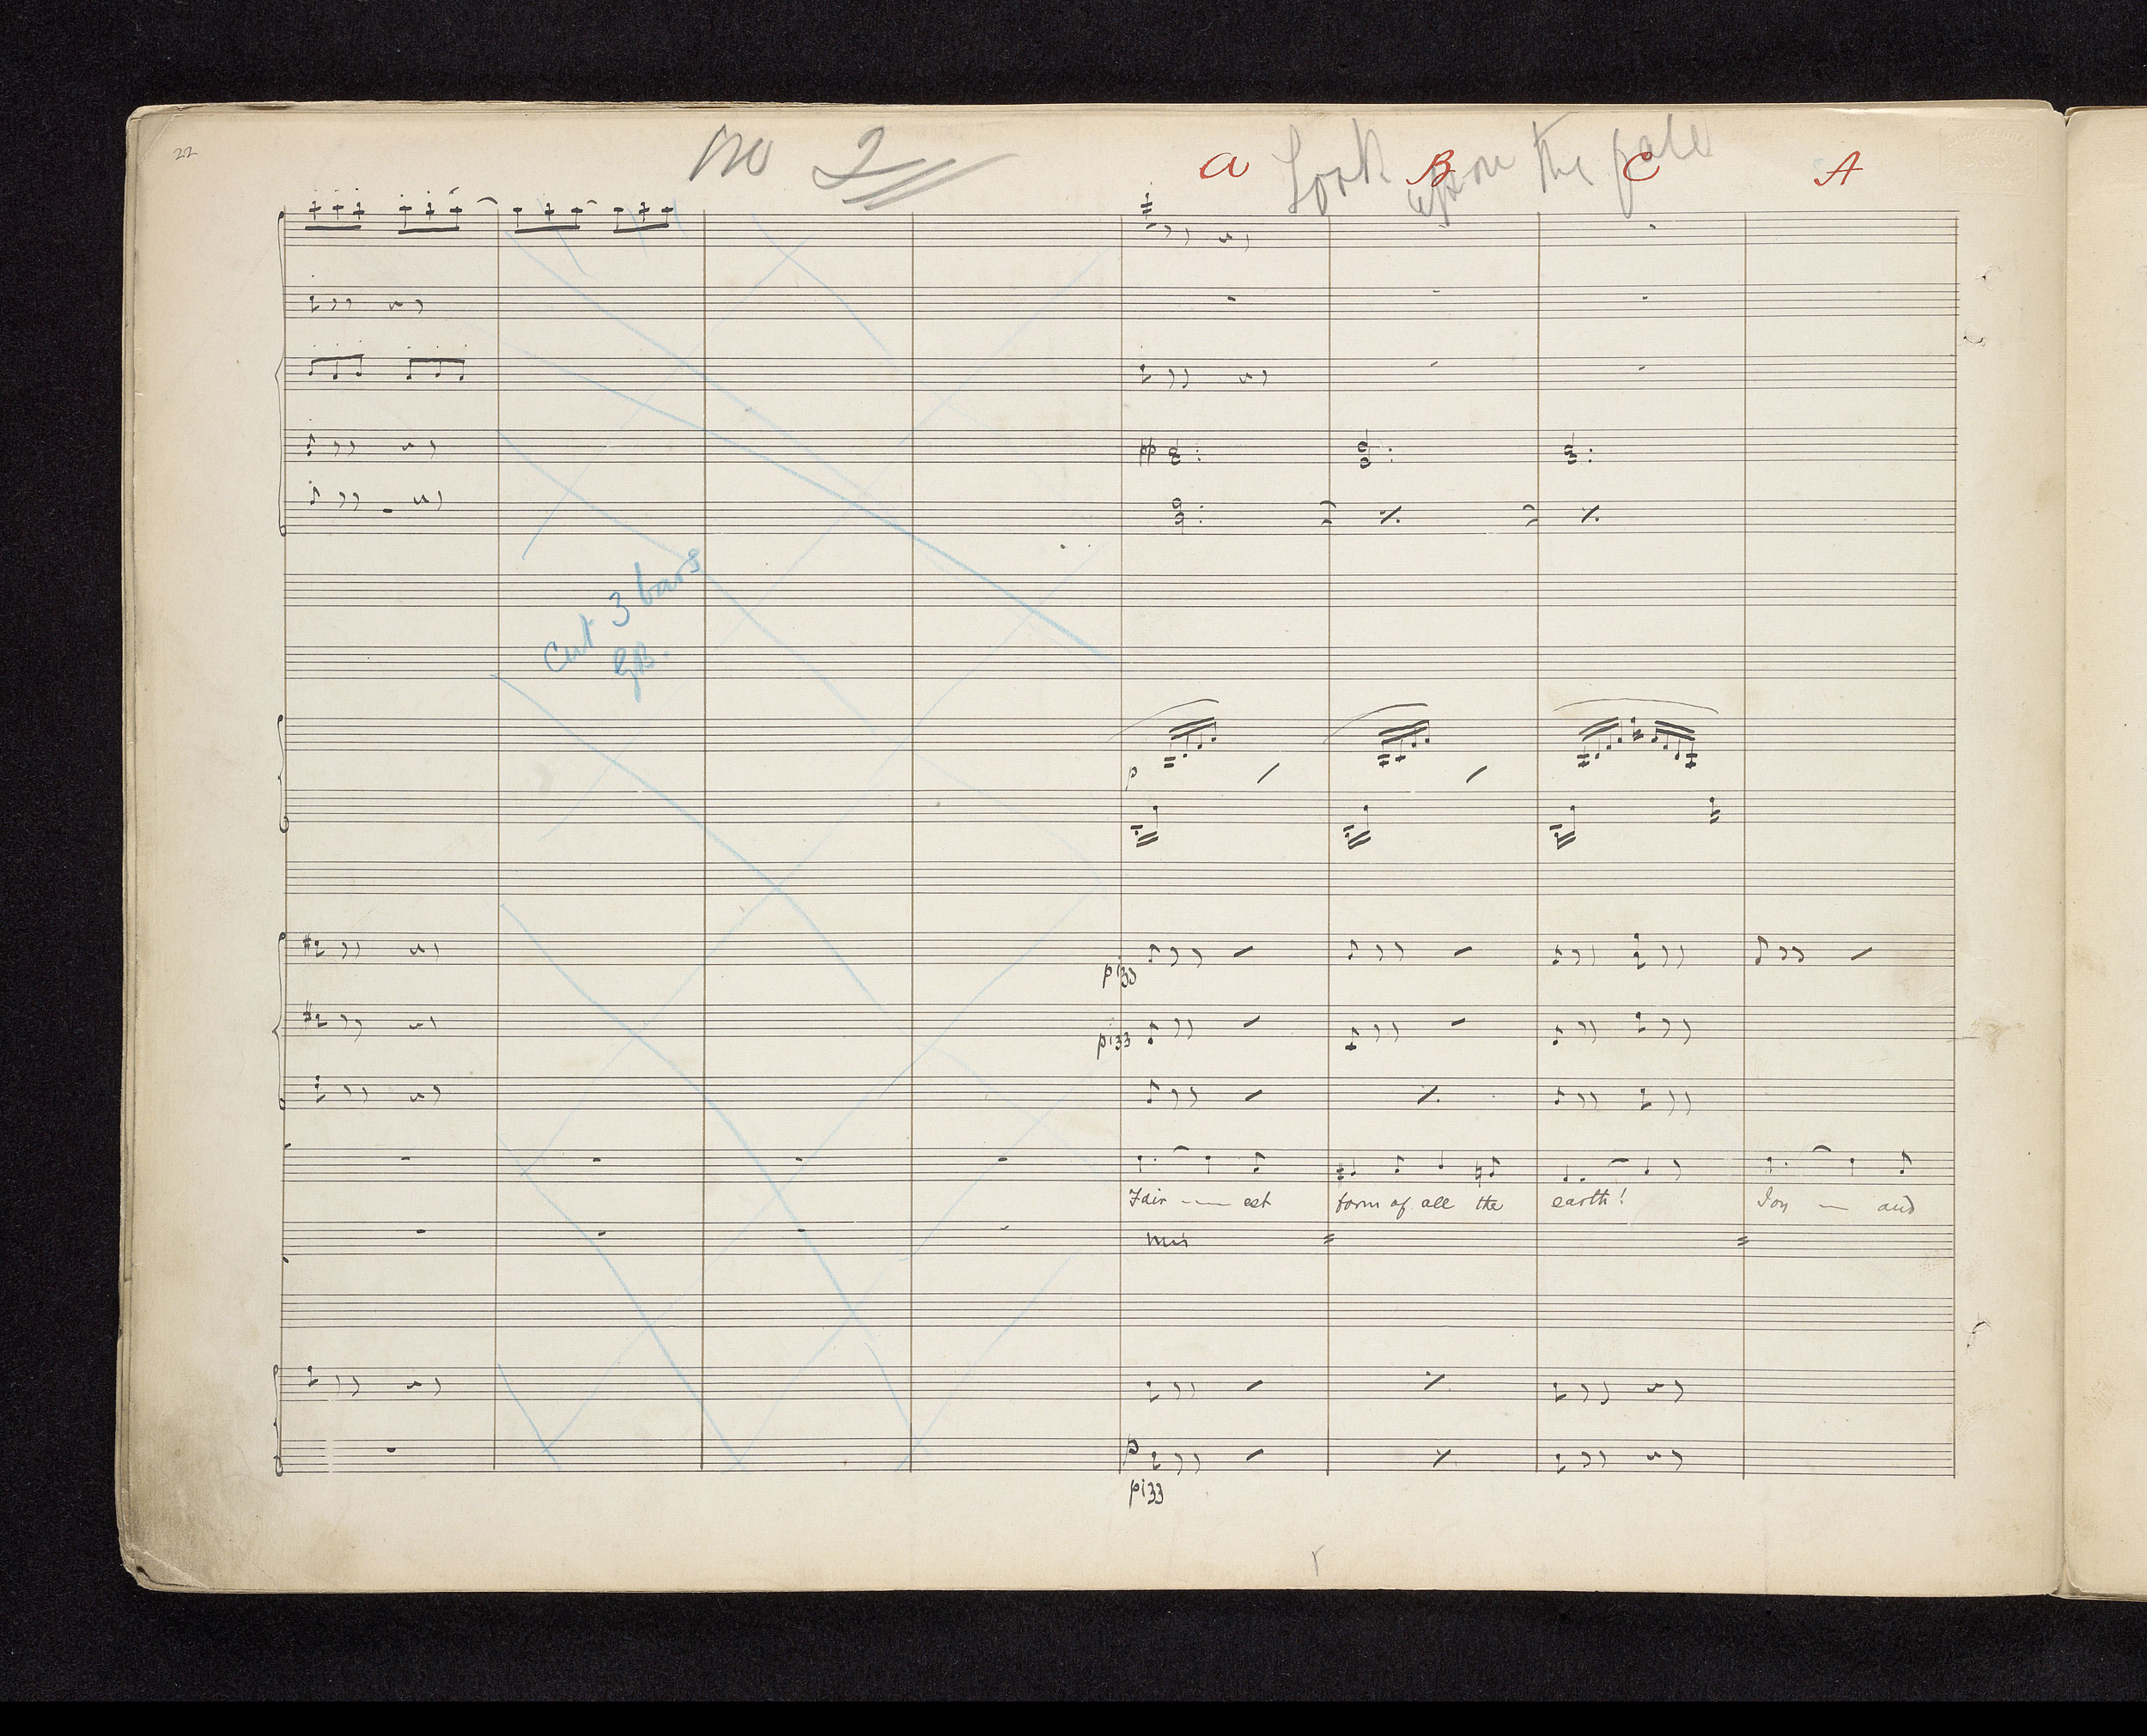 22
No 2
Look upon the pale
a B C A
pp
Cut 3 bars
GB.
p
pizz
pizz
Fair - - - est form of all the earth! Joy — and
unis
p
pizz